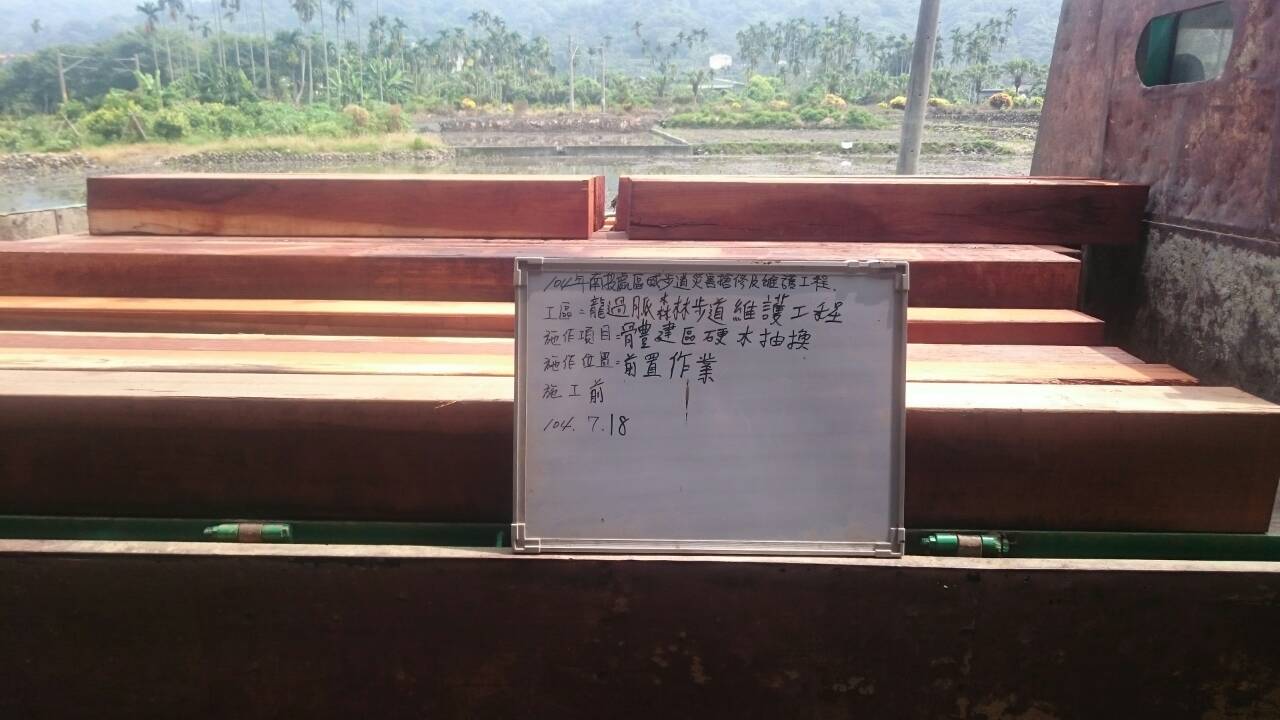 104年南投處區域步道災害搶修及維護工程.
工區:龍過脈森林步道維護工程
施作項目:體健區硬木抽換
施作位置:前置作業
施工前
104.7.18